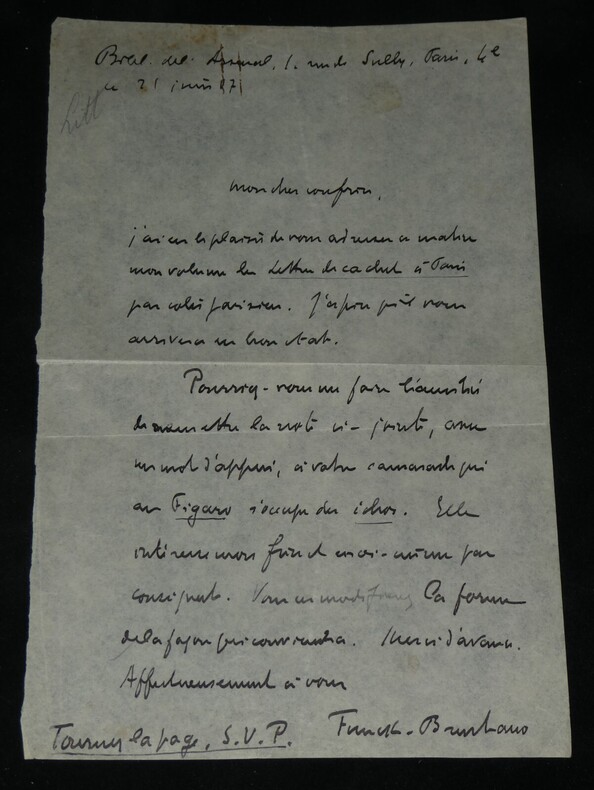 Bibl. de l'Arsenal, 1. rue de Sully, Paris, 4e
ce 21 juin
Litt
Mon cher confrère,
j'ai eu le plaisir de vous adresser ce matin
mon volume les Lettres de cachet à Paris
par colis parisien. J'espère qu'il vous
arrivera en bon état.
Pourriez-vous me faire l'amitié
de remettre la note ci-jointe, avec
un mot d'appui, à votre camarade qui
au Figaro s'occupe des échos. Elle
intéresse mon frère et moi-même par
conséquent. Vous en modifierez la forme
de la façon qui conviendra. Merci d'avance.
Affectueusement à vous
Funck-Brentano
Tournez la page, S.V.P.